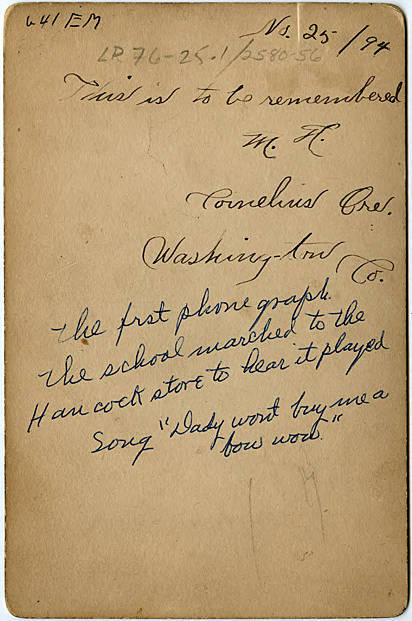 641 EM
No. 25/94
LP 76-25.1/2580-56
This is to be remembered
M. H.
Cornelius Ore.
Washington
Co.
The frst phone graph.
The school marched to the
Hancock store to hear it played
Song "Dady wont buy me a
bow wow."